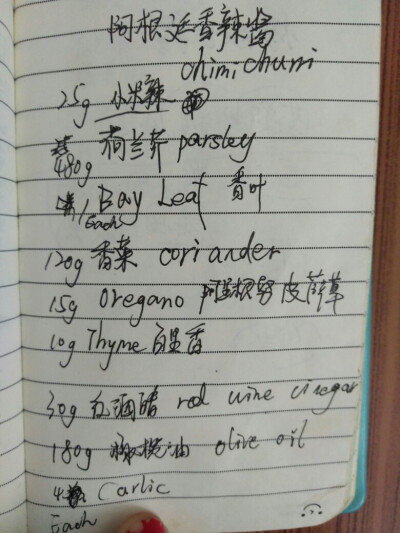 阿根廷香辣酱
chimichurri
25g 小米辣
480g 荷兰芹 parsley
1 Each Bay Leaf 香叶
120g 香菜 coriander
15g oregano 阿根努皮萨草
10g Thyme 百里香
30g 红酒醋 red wine vinegar
180g 橄榄油 olive oil
4 Garlic
Each